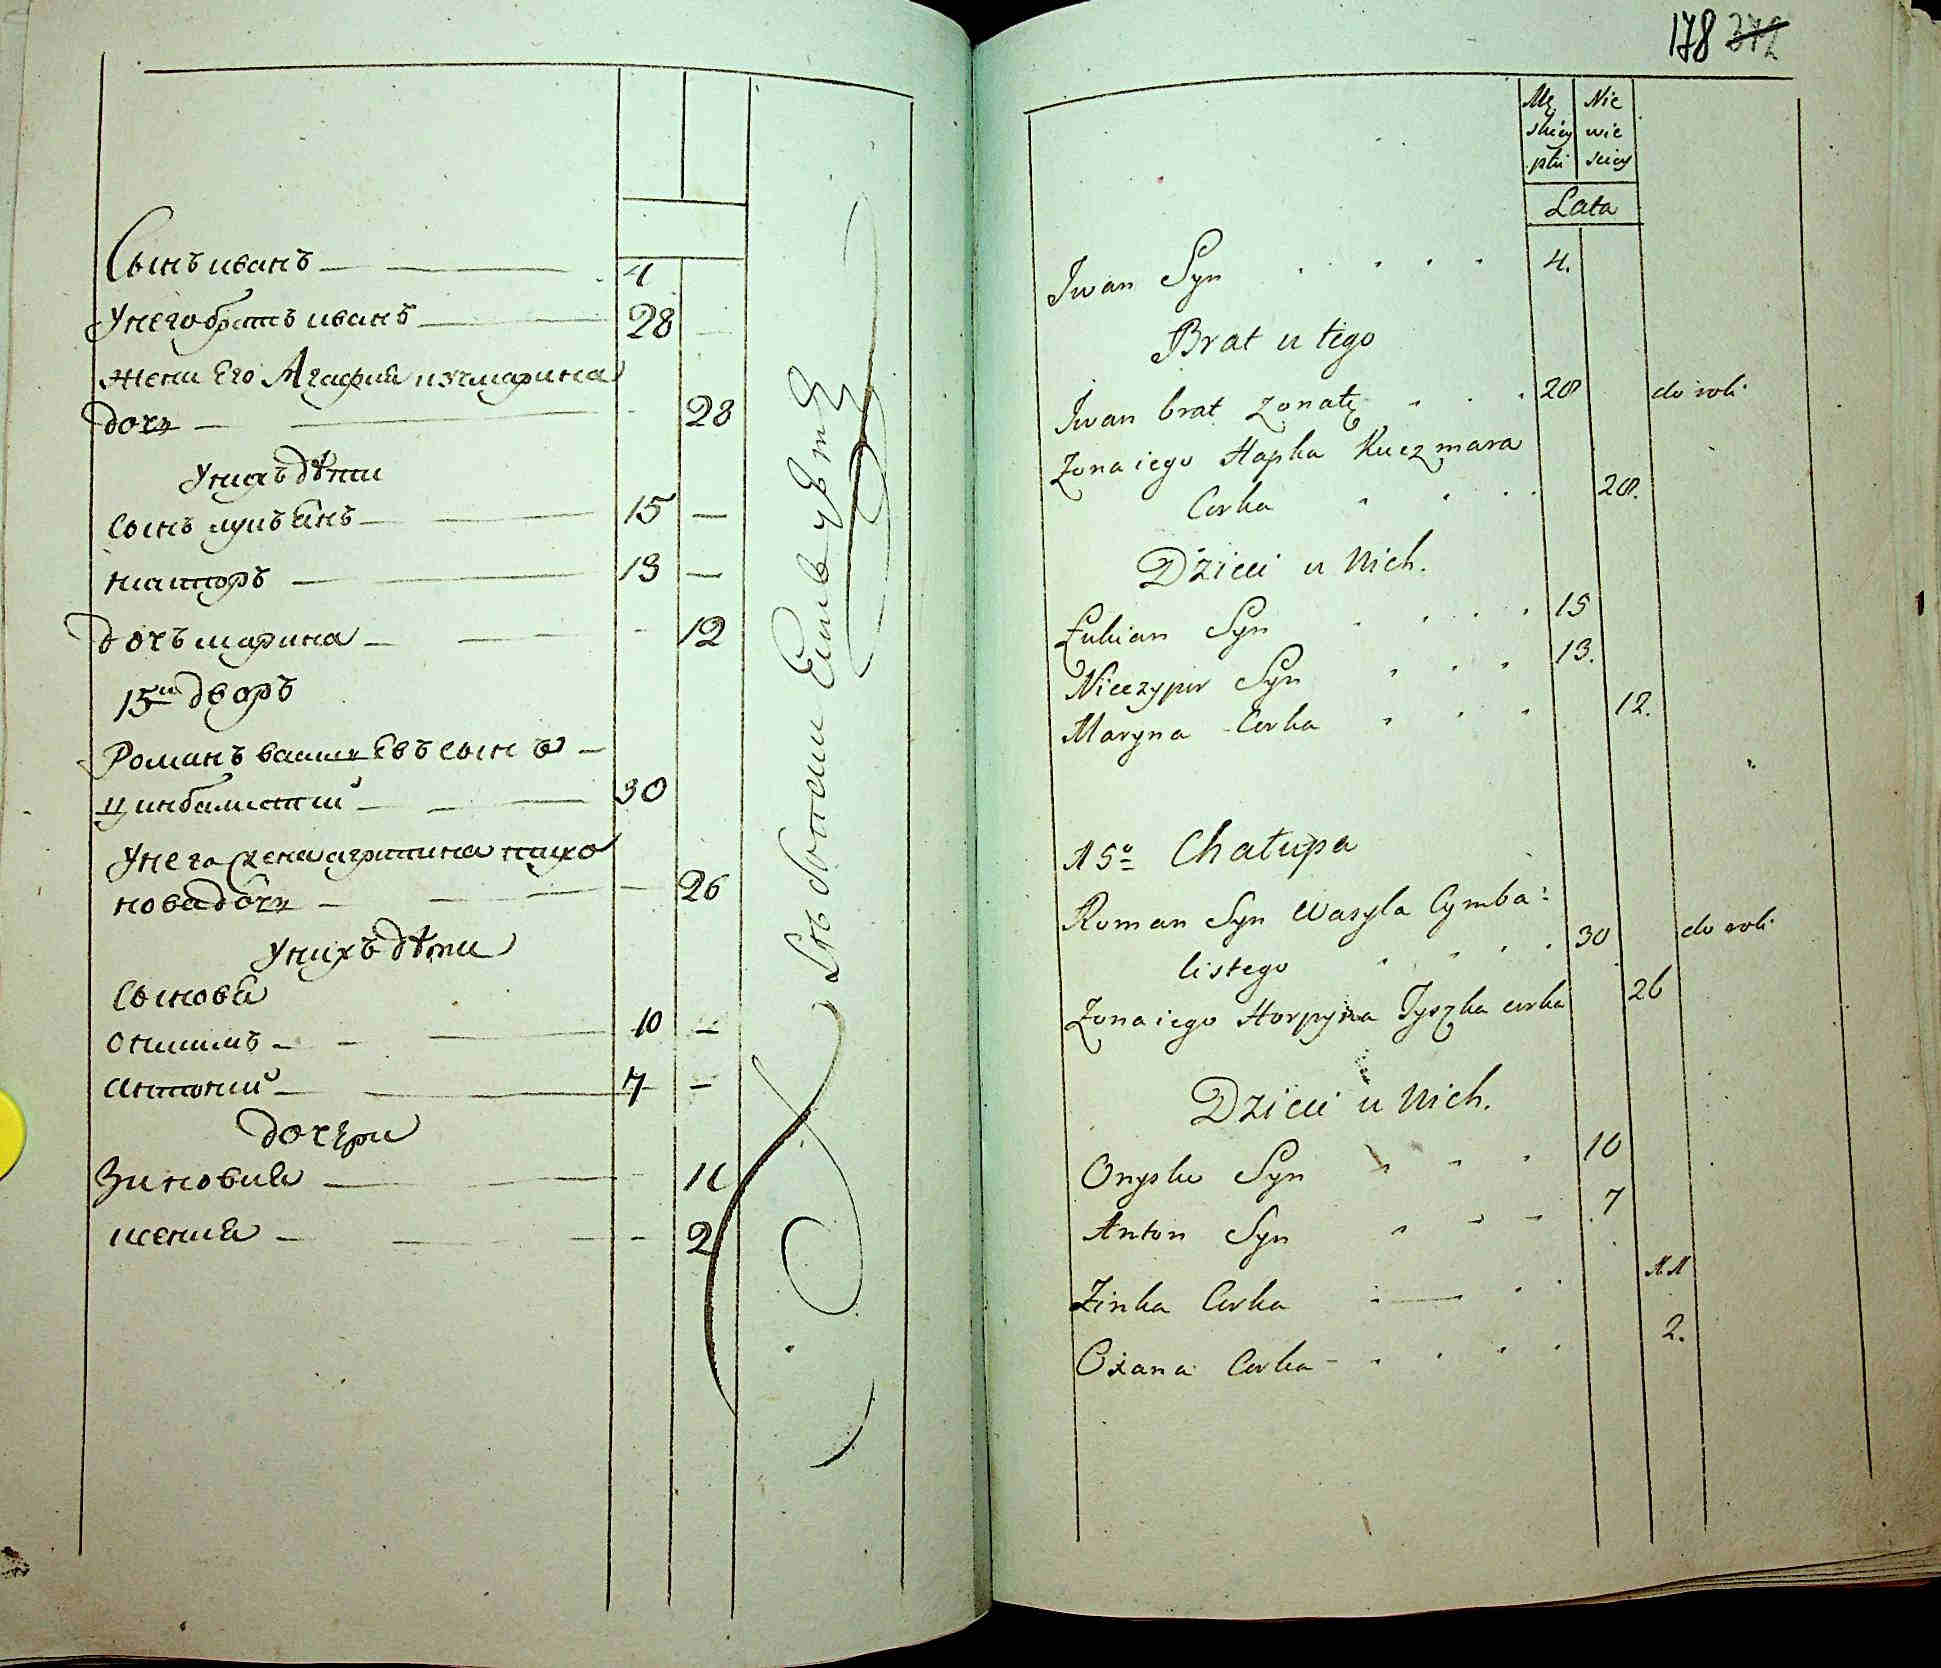 Сынъ иванъ 4
Унего братъ иванъ 28
жени Его Агафия кузмарина
дочь 28
Унихъ дѣти
сынъ лукъянъ 15 —
ничипоръ 13 —
дочъ марина 12
15й дворъ
Романъ василъЕвъ сынъ
цинбалистий 30
Унего жена агрипина тихо
нова дочь 26
Унихъ дѣти
Сыновя
онисимъ 10 —
антоний 7 —
дочЕри
Зиновия 11
ксения 2
178 372
Mę Nie
skiey wie
płci sciey
Lata
Iwan Syn 4.
Brat u tego
Iwan brat żonaty 28 do roli
Żona iego Hapka Kuczmara
Corka 28.
Dzieci u Nich.
Łukian Syn 15
Nieczypor Syn 13.
Maryna Corka 12.
15º Chałupa
Roman Syn Wasyla Cymba:
listego 30 do roli
Żona iego Horpyna Tyszka corka 26
Dzieci u Nich.
Onysko Syn 10
Anton Syn 7
Zinka Corka 11
Oxana Corka 2.